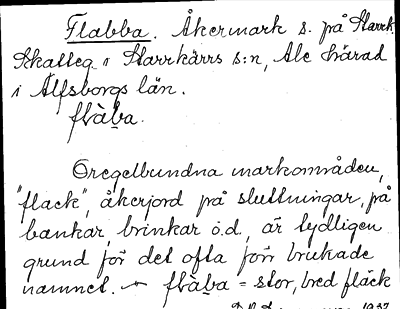 Flabba. Åkermark s. på Starrk.
Skatteg i Starrkärrs s:n, Ale härad
i Älfsborgs län.
flàba.
Oregelbundna markområden,
"flack", åkerjord på sluttningar, på
backar, brinkar o.d., är tydligen
grund för det ofta förr brukade
namnet. flàba = stor, bred fläck
1937